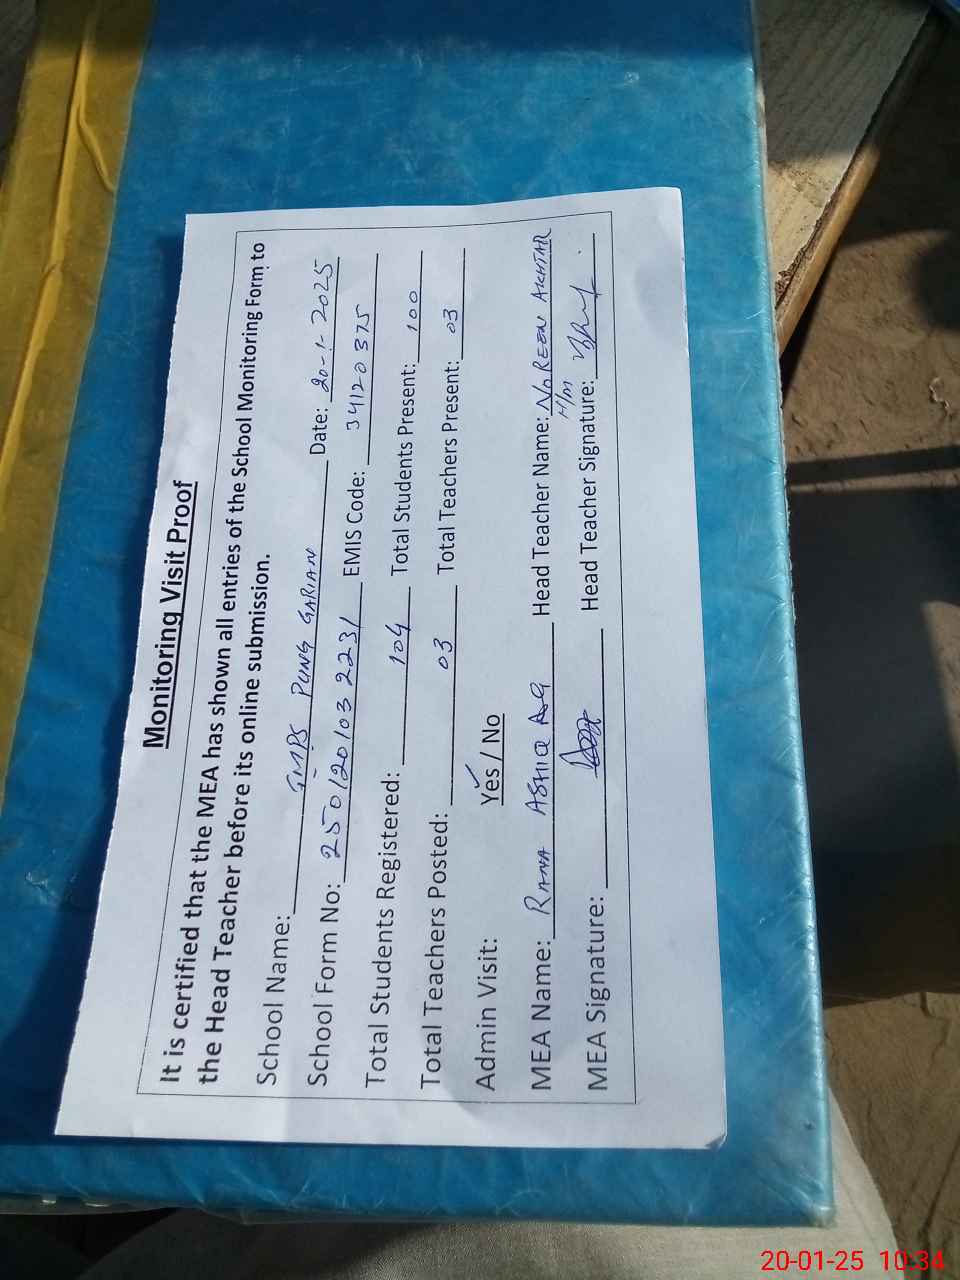 Monitoring Visit Proof
It is certified that the MEA has shown all entries of the School Monitoring Form to
the Head Teacher before its online submission.
School Name: GMPS PUNG GARIAN Date: 20-1-2025
School Form No: 250120103 2231 EMIS Code: 34120375
Total Students Registered: 104 Total Students Present: 100
Total Teachers Posted: 03 Total Teachers Present: 03
Admin Visit: Yes / No
MEA Name: RANA ASHIQ Head Teacher Name: NOREEN AKHTAR
H/M
MEA Signature: Head Teacher Signature:
20-01-25 10:34